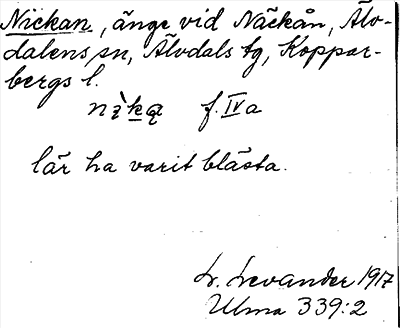 Nickan, änge vid Näckån, Älv-
dalens sn, Älvdals tg, Koppar-
bergs l.
f. IV a
lär ha varit blästa.
L. Levander 1917
Ulma 339:2